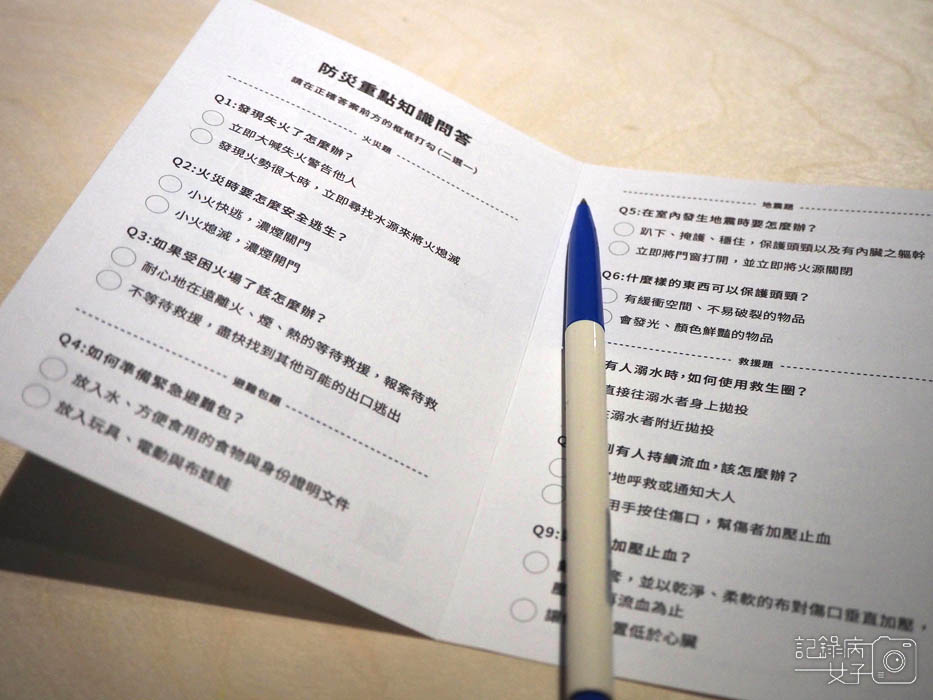 防災重點知識問答
請在正確答案前方的框框打勾(二選一)
火災題
Q1:發現失火了怎麼辦?
立即大喊失火警告他人
發現火勢很大時，立即尋找水源來將火熄滅
Q2:火災時要怎麼安全逃生?
小火快逃，濃煙關門
小火熄滅，濃煙開門
Q3:如果受困火場了該怎麼辦?
耐心地在遠離火、煙、熱的等待救援，報案待救
不等待救援，盡快找到其他可能的出口逃出
避難包題
Q4:如何準備緊急避難包?
放入水、方便食用的食物與身份證明文件
放入玩具、電動與布娃娃
地震題
Q5:在室內發生地震時要怎麼辦?
趴下、掩護、穩住，保護頭頸以及有內臟之軀幹
立即將門窗打開，並立即將火源關閉
Q6:什麼樣的東西可以保護頭頸?
有緩衝空間、不易破裂的物品
會發光、顏色鮮豔的物品
救援題
有人溺水時，如何使用救生圈?
直接往溺水者身上拋投
溺水者附近拋投
有人持續流血，該怎麼辦?
地呼救或通知大人
用手按住傷口，幫傷者加壓止血
Q9:
加壓止血?
套，並以乾淨、柔軟的布對傷口垂直加壓，
流血為止
讓
置低於心臟
記錄病女子